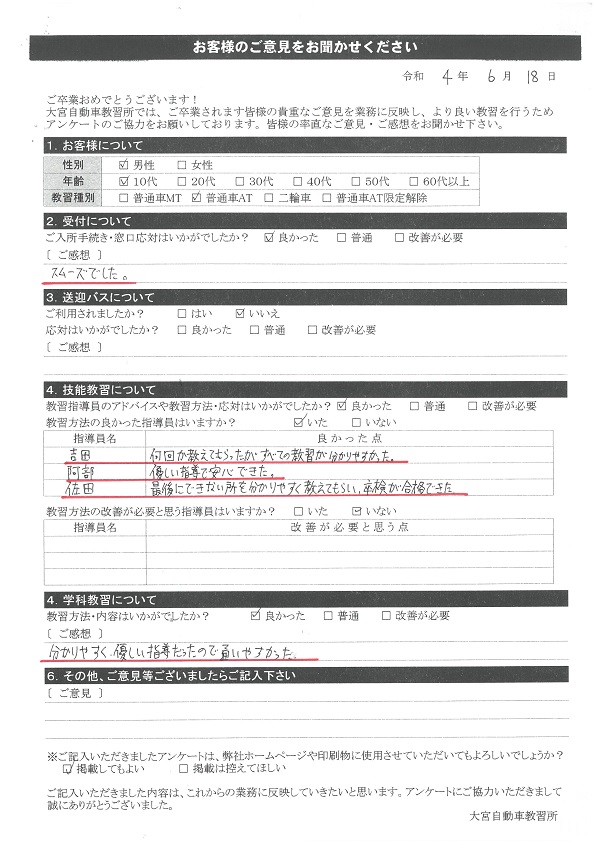 お客様のご意見をお聞かせください
令和 4 年 6 月 18 日
ご卒業おめでとうございます！
大宮自動車教習所では、ご卒業されます皆様の貴重なご意見を業務に反映し、より良い教習を行うため
アンケートのご協力をお願いしております。皆様の率直なご意見・ご感想をお聞かせ下さい。
1. お客様について
性別 ☑ 男性 □ 女性
年齢 ☑ 10代 □ 20代 □ 30代 □ 40代 □ 50代 □ 60代以上
教習種別 □ 普通車MT ☑ 普通車AT □ 二輪車 □ 普通車AT限定解除
2. 受付について
ご入所手続き・窓口応対はいかがでしたか？ ☑ 良かった □ 普通 □ 改善が必要
〔 ご感想 〕
スムーズでした。
3. 送迎バスについて
ご利用されましたか？ □ はい ☑ いいえ
応対はいかがでしたか？ □ 良かった □ 普通 □ 改善が必要
〔 ご感想 〕
4. 技能教習について
教習指導員のアドバイスや教習方法・応対はいかがでしたか？ ☑ 良かった □ 普通 □ 改善が必要
教習方法の良かった指導員はいますか？ ☑ いた □ いない
指導員名 良かった点
吉田 何回か教えてもらったがすべての教習が分かりやすかった。
阿部 優しい指導で安心できた。
佐田 最後にできない所を分かりやすく教えてもらい、卒検が合格できた
教習方法の改善が必要と思う指導員はいますか？ □ いた ☑ いない
指導員名 改善が必要と思う点
4. 学科教習について
教習方法・内容はいかがでしたか？ ☑ 良かった □ 普通 □ 改善が必要
〔 ご感想 〕
分かりやすく、優しい指導だったので通いやすかった。
6. その他、ご意見等ございましたらご記入下さい
〔 ご意見 〕
※ご記入いただきましたアンケートは、弊社ホームページや印刷物に使用させていただいてもよろしいでしょうか？
☑ 掲載してもよい □ 掲載は控えてほしい
ご記入いただきました内容は、これからの業務に反映していきたいと思います。アンケートにご協力いただきまして
誠にありがとうございました。
大宮自動車教習所